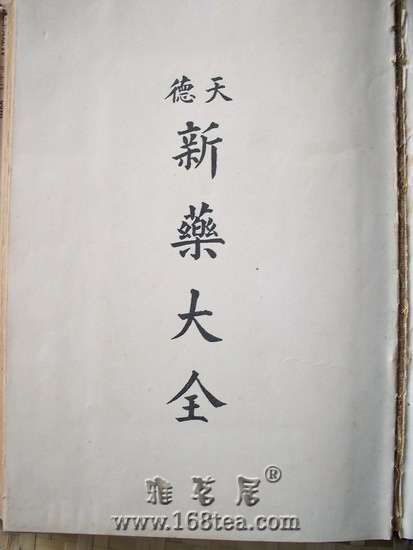 天德
新藥大全
雅茗居®
www.168tea.com